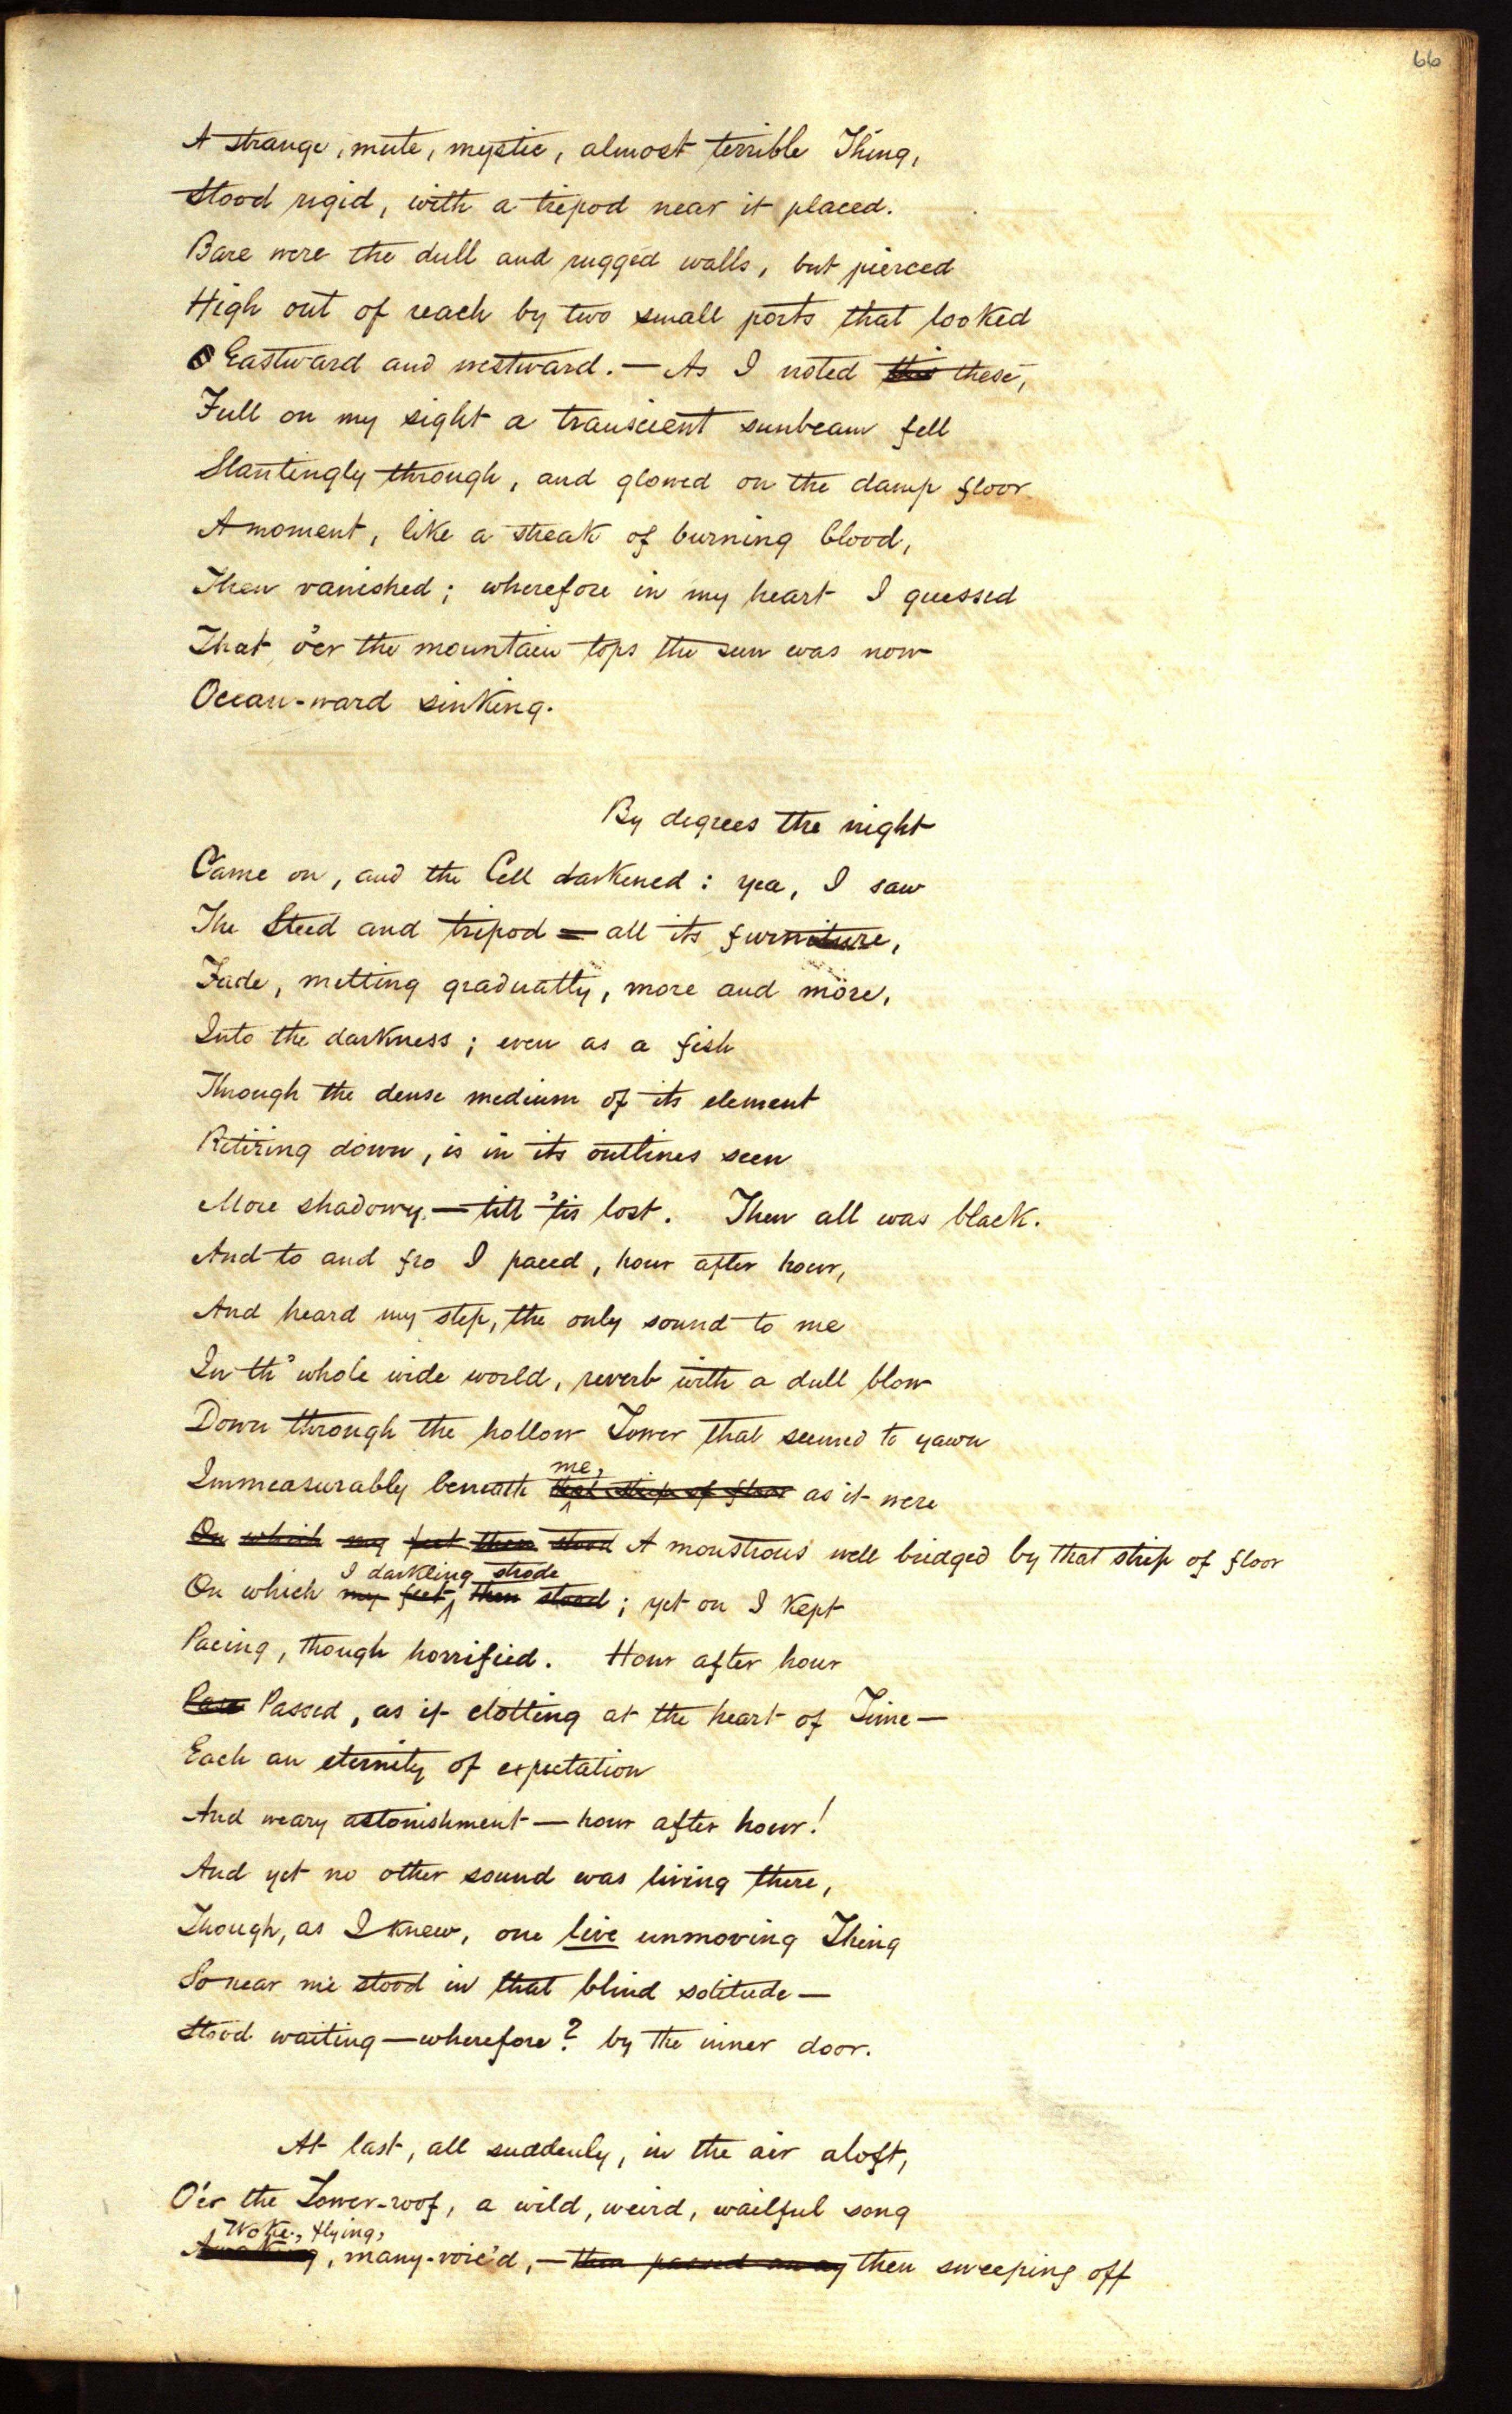 66
A strange, mute, mystic, almost terrible Thing,
Stood rigid, with a tripod near it placed.
Bare were the dull and rugged walls, but pierced
High out of reach by two small ports that looked
Eastward and westward. — As I noted this these,
Full on my sight a transcient sunbeam fell
Slantingly through, and glowed on the damp floor
A moment, like a streak of burning blood,
Then vanished; wherefore in my heart I guessed
That o'er the mountain tops the sun was now
Ocean-ward sinking.
By degrees the night
Came on, and the Cell darkened: yea, I saw
The Steed and tripod — all its furniture,
Fade, melting gradually, more and more,
Into the darkness; even as a fish
Through the dense medium of its element
Retiring down, is in its outlines seen
More shadowy — till 'tis lost. Then all was black.
And to and fro I paced, hour after hour,
And heard my step, the only sound to me
In th' whole wide world, reverb with a dull blow
Down through the hollow Tower that seemed to yawn
me,
Immeasurably beneath that strip of floor as it were
On which my feet then stood A monstrous well bridged by that strip of floor
I darkling strode
On which my feet then stood; yet on I kept
Pacing, though horrified. Hour after hour
Pass Passed, as if clotting at the heart of Time —
Each an eternity of expectation
And weary astonishment — hour after hour!
And yet no other sound was living there,
Though, as I knew, one live unmoving Thing
So near me stood in that blind solitude —
Stood waiting — wherefore? by the inner door.
At last, all suddenly, in the air aloft,
O'er the Tower-roof, a wild, weird, wailful song
Woke, flying,
Awaking, many-voic'd, — then passed away then sweeping off